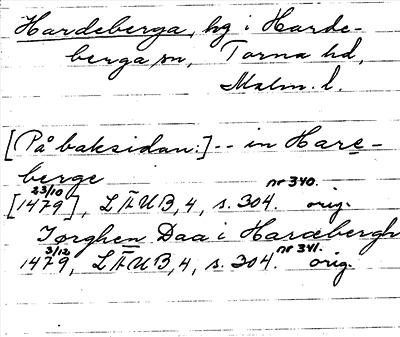 Hardeberga, hg i Harde-
berga sn, Torna hd,
Malm. l.
[På baksidan:] -- in Hare-
berge
[1479 23/10], LÄUB, 4, s. 304. nr 340. orig.
Jørghen Daa i Hardebergh
1479 3/12, LÄUB, 4, s. 304. nr 341. orig.